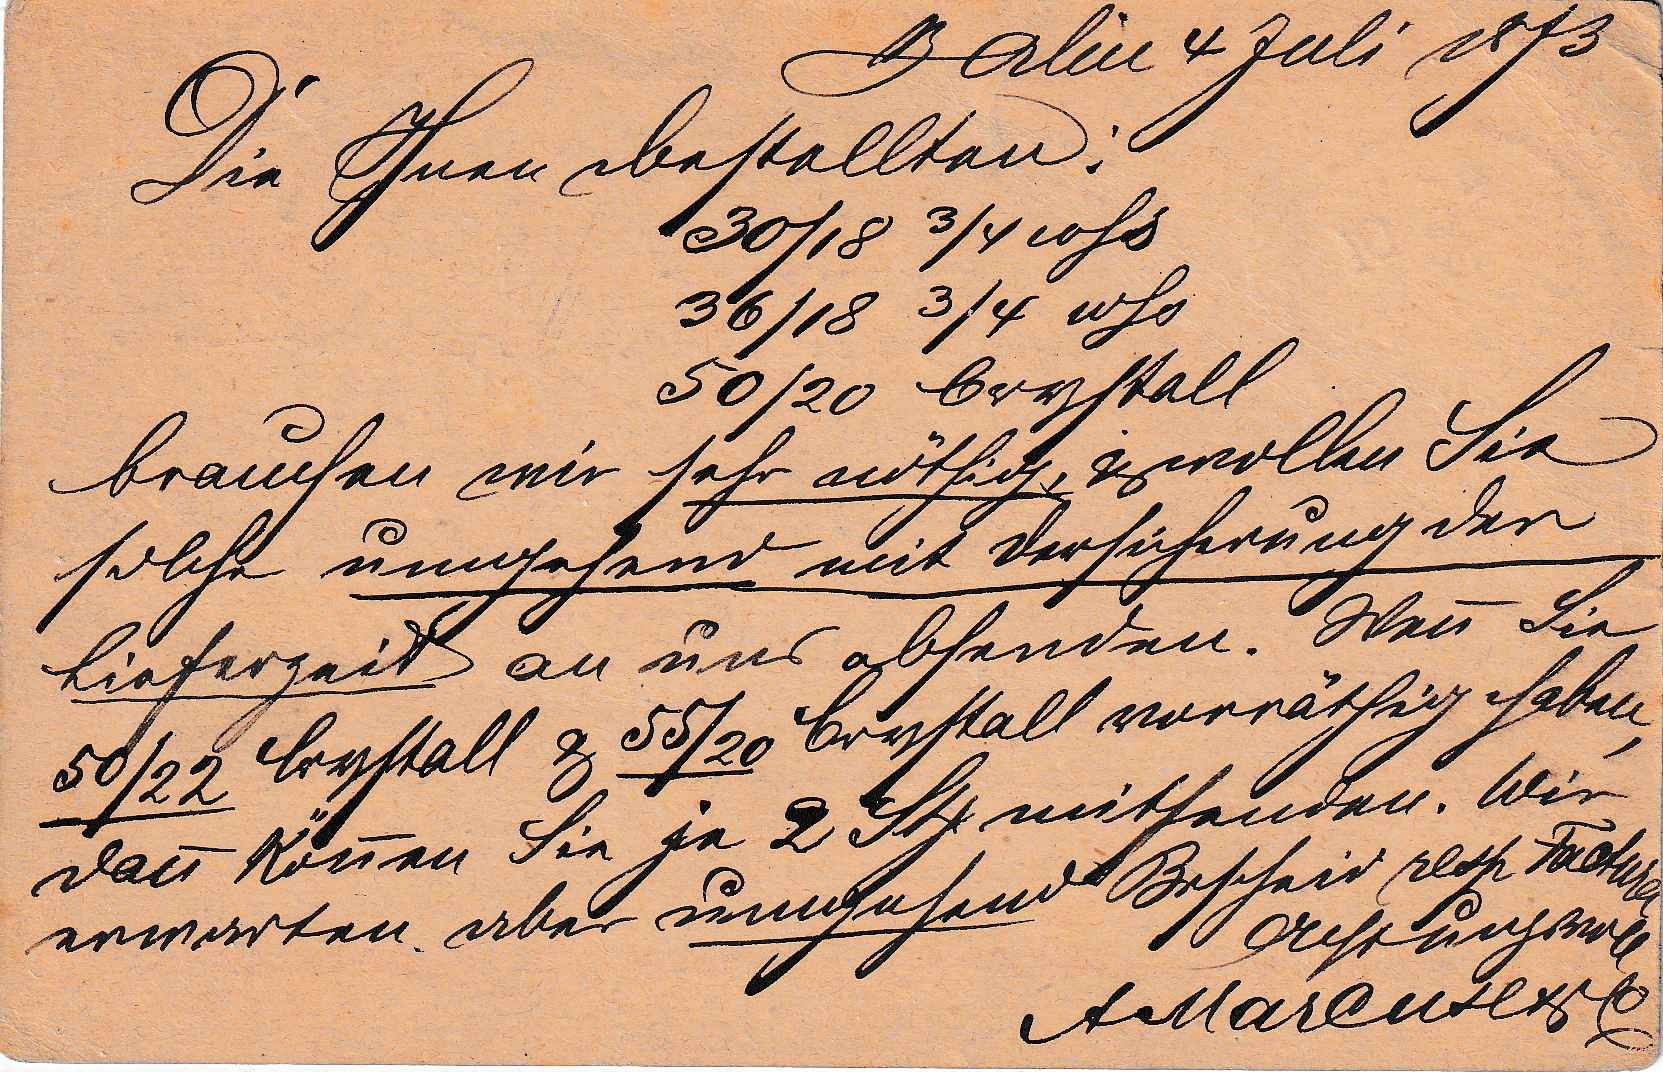 Berlin 4 Juli 1873
Die Ihnen bestellten:
30/18 3/4 wss
36/18 3/4 wss
50/20 Crystall
brauchen wir sehr nöthig, & wollen Sie
solche umgehend mit Versicherung der
Lieferzeit an uns absenden. Wen̅ Sie
50/22 Crystall & 55/20 Crystall vorräthig haben,
dan̅ kön̅en Sie je 2 Stk mitsenden. Wir
erwarten aber umgehend Bescheid resp Factura
Achtungsvoll
A Marcus & Co